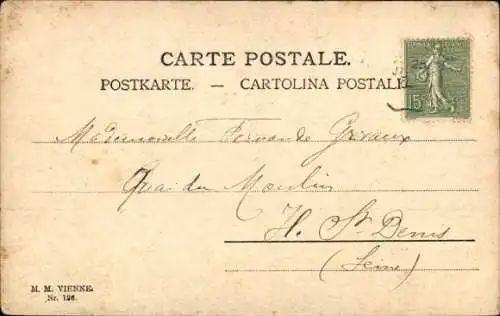 CARTE POSTALE.
POSTKARTE. — CARTOLINA POSTALE
15
Mademoiselle Fernande
Quai du Moulin
St Denis
(Seine)
M. M. VIENNE.
Nr. 126.